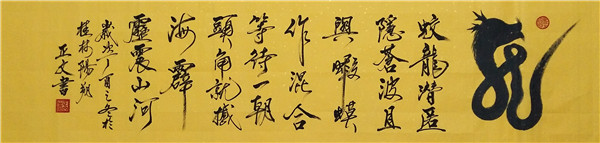 龍
蛟龍潛匿
隱蒼波且
與蝦蟆
作混合
等待一朝
頭角就撼
海霹
靂震山河
歲次丁酉之冬於
桂林陽朔
正文書